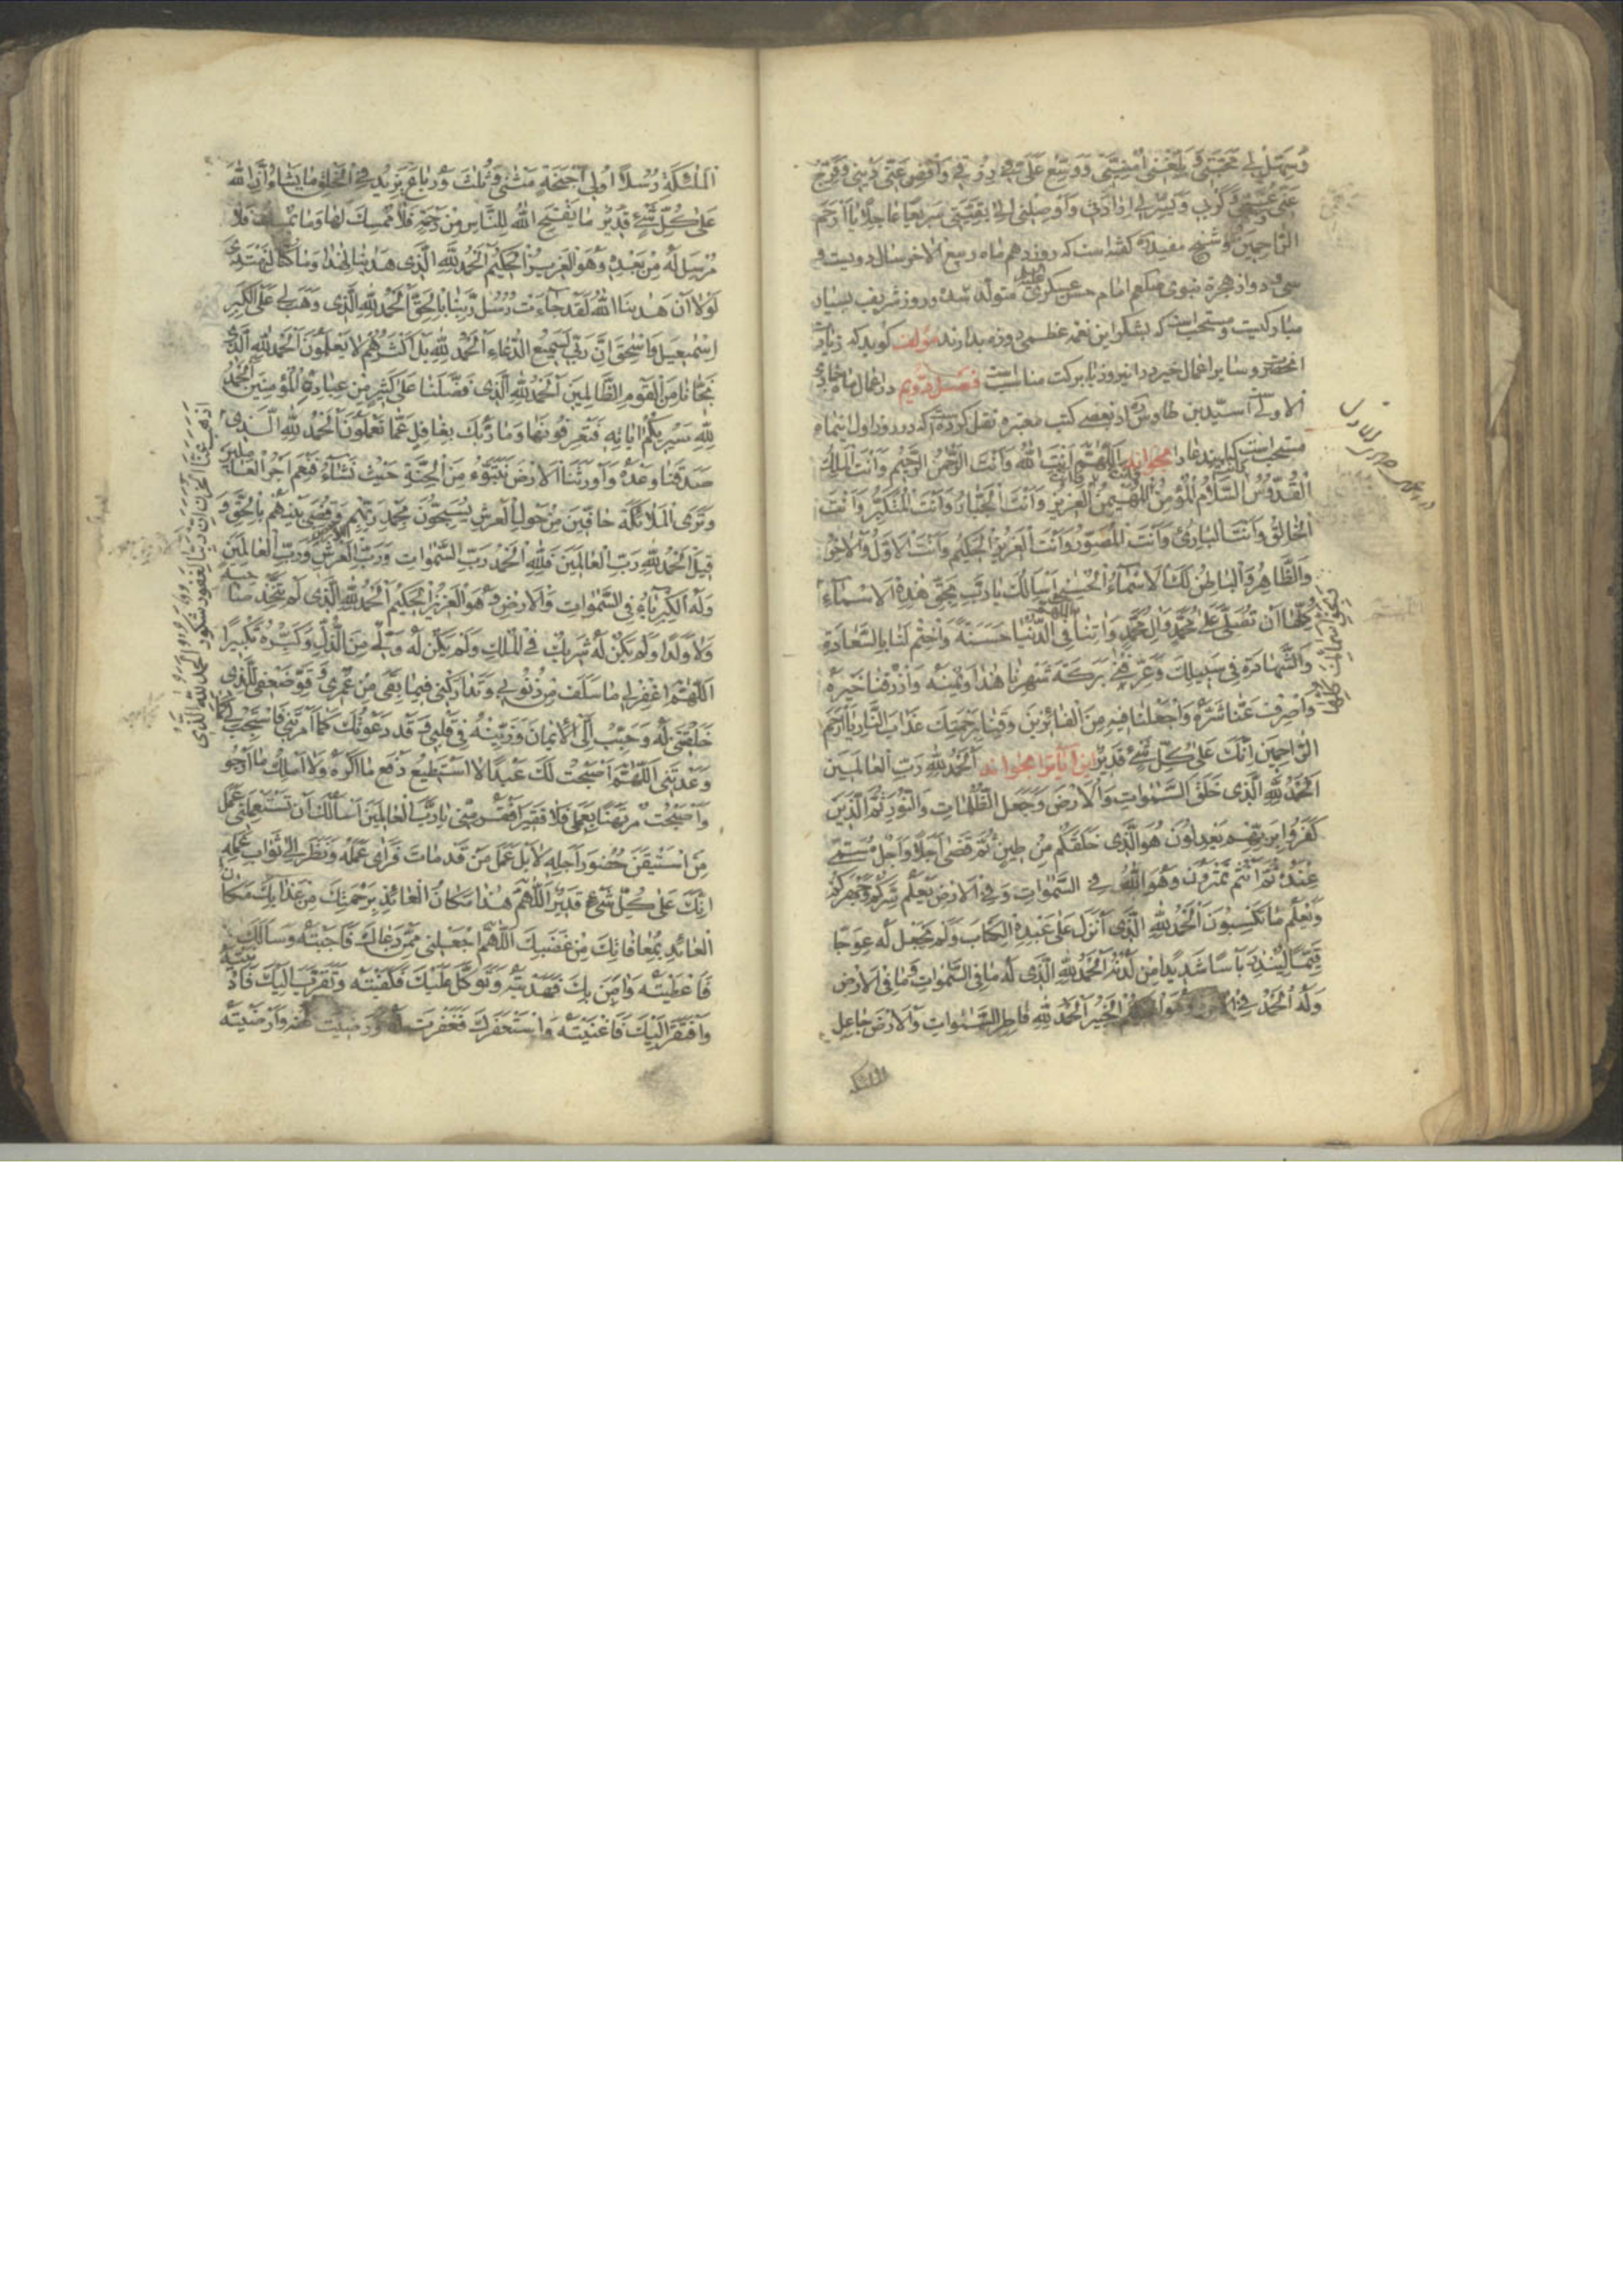 وَسَهِّلْ لِي مَحَبَّتِي وَبَلِّغْنِي اُمْنِيَّتِي وَوَسِّعْ عَلَيَّ فِي رِزْقِي وَاقْضِ عَنِّي دَيْنِي وَفَرِّجْ
عَنِّي هَمِّي وَكَرْبِي وَيَسِّرْ لِي اِرَادَتِي وَاَوْصِلْنِي اِلٰى بُغْيَتِي سَرِيعًا عَاجِلًا يَا اَرْحَمَ
الرَّاحِمِينَ وشیخ مفید ره گفته است که روز دهم ماه ربیع الاخر سال دویست و
سی و دو از هجرة نبوی صلعم امام حسن عسکری علیه متولد شده و روز شریف بسیار
مبارکیست و مستحب است که بشکر این نعمة عظمی روزه بدارند مؤلف گوید که زیارت
انحضرت و سایر اعمال خیر در این روز با برکت مناسب است فصل دویم در اعمال ماه جمادی
الاولی است سید بن طاوس ره از بعضی کتب معتبره نقل کرده است که در روز اول اینماه
مستحب است که این دعا را بخوانند اَللّٰهُمَّ اَنْتَ اللّٰهُ وَاَنْتَ الرَّحْمٰنُ الرَّحِيمُ وَاَنْتَ الْمَلِكُ
الْقُدُّوسُ السَّلَامُ الْمُؤْمِنُ الْمُهَيْمِنُ الْعَزِيزُ وَاَنْتَ الْجَبَّارُ وَاَنْتَ الْمُتَكَبِّرُ وَاَنْتَ
الْخَالِقُ وَاَنْتَ الْبَارِئُ وَاَنْتَ الْمُصَوِّرُ وَاَنْتَ الْعَزِيزُ الْحَكِيمُ وَاَنْتَ الْاَوَّلُ وَالْاٰخِرُ
وَالظَّاهِرُ وَالْبَاطِنُ لَكَ الْاَسْمَاءُ الْحُسْنٰى اَسْاَلُكَ يَا رَبِّ بِحَقِّ هٰذِهِ الْاَسْمَاءِ
وَبِحَقِّ اَسْمَائِكَ كُلِّهَا
كُلِّهَا اَنْ تُصَلِّيَ عَلٰى مُحَمَّدٍ وَاٰلِ مُحَمَّدٍ وَاٰتِنَا اللّٰهُمَّ فِي الدُّنْيَا حَسَنَةً وَاخْتِمْ لَنَا بِالسَّعَادَةِ
وَالشَّهَادَةِ فِي سَبِيلِكَ وَعَرِّفْنِي بَرَكَةَ شَهْرِنَا هٰذَا وَيُمْنَهُ وَارْزُقْنَا خَيْرَهُ
وَاصْرِفْ عَنَّا شَرَّهُ وَاجْعَلْنَا فِيهِ مِنَ الْفَائِزِينَ وَقِنَا بِرَحْمَتِكَ عَذَابَ النَّارِ يَا اَرْحَمَ
الرَّاحِمِينَ اِنَّكَ عَلٰى كُلِّ شَيْءٍ قَدِيرٌ این آیات را بخوانند اَلْحَمْدُ لِلّٰهِ رَبِّ الْعَالَمِينَ
اَلْحَمْدُ لِلّٰهِ الَّذِي خَلَقَ السَّمٰوَاتِ وَالْاَرْضَ وَجَعَلَ الظُّلُمَاتِ وَالنُّورَ ثُمَّ الَّذِينَ
كَفَرُوا بِرَبِّهِمْ يَعْدِلُونَ هُوَ الَّذِي خَلَقَكُمْ مِنْ طِينٍ ثُمَّ قَضٰى اَجَلًا وَاَجَلٌ مُسَمًّى
عِنْدَهُ ثُمَّ اَنْتُمْ تَمْتَرُونَ وَهُوَ اللّٰهُ فِي السَّمٰوَاتِ وَفِي الْاَرْضِ يَعْلَمُ سِرَّكُمْ وَجَهْرَكُمْ
وَيَعْلَمُ مَا تَكْسِبُونَ اَلْحَمْدُ لِلّٰهِ الَّذِي اَنْزَلَ عَلٰى عَبْدِهِ الْكِتَابَ وَلَمْ يَجْعَلْ لَهُ عِوَجًا
قَيِّمًا لِيُنْذِرَ بَاْسًا شَدِيدًا مِنْ لَدُنْهُ اَلْحَمْدُ لِلّٰهِ الَّذِي لَهُ مَا فِي السَّمٰوَاتِ وَمَا فِي الْاَرْضِ
وَلَهُ الْحَمْدُ فِي الْاٰخِرَةِ وَهُوَ الْحَكِيمُ الْخَبِيرُ اَلْحَمْدُ لِلّٰهِ فَاطِرِ السَّمٰوَاتِ وَالْاَرْضِ جَاعِلِ
الملئكة
الْمَلٰئِكَةِ رُسُلًا اُولِي اَجْنِحَةٍ مَثْنٰى وَثُلٰثَ وَرُبَاعَ يَزِيدُ فِي الْخَلْقِ مَا يَشَاءُ اِنَّ اللّٰهَ
عَلٰى كُلِّ شَيْءٍ قَدِيرٌ مَا يَفْتَحِ اللّٰهُ لِلنَّاسِ مِنْ رَحْمَةٍ فَلَا مُمْسِكَ لَهَا وَمَا يُمْسِكْ فَلَا
مُرْسِلَ لَهُ مِنْ بَعْدِهِ وَهُوَ الْعَزِيزُ الْحَكِيمُ اَلْحَمْدُ لِلّٰهِ الَّذِي هَدٰينَا لِهٰذَا وَمَا كُنَّا لِنَهْتَدِيَ
لَوْلَا اَنْ هَدٰينَا اللّٰهُ لَقَدْ جَاءَتْ رُسُلُ رَبِّنَا بِالْحَقِّ اَلْحَمْدُ لِلّٰهِ الَّذِي وَهَبَ لِي عَلَى الْكِبَرِ
اِسْمٰعِيلَ وَاِسْحٰقَ اِنَّ رَبِّي لَسَمِيعُ الدُّعَاءِ اَلْحَمْدُ لِلّٰهِ بَلْ اَكْثَرُهُمْ لَا يَعْلَمُونَ اَلْحَمْدُ لِلّٰهِ الَّذِي
نَجَّانَا مِنَ الْقَوْمِ الظَّالِمِينَ اَلْحَمْدُ لِلّٰهِ الَّذِي فَضَّلَنَا عَلٰى كَثِيرٍ مِنْ عِبَادِهِ الْمُؤْمِنِينَ اَلْحَمْدُ
لِلّٰهِ سَيُرِيكُمْ اٰيَاتِهِ فَتَعْرِفُونَهَا وَمَا رَبُّكَ بِغَافِلٍ عَمَّا تَعْمَلُونَ اَلْحَمْدُ لِلّٰهِ الَّذِي
اَذْهَبَ عَنَّا الْحَزَنَ اِنَّ رَبَّنَا لَغَفُورٌ شَكُورٌ اَلْحَمْدُ لِلّٰهِ الَّذِي
صَدَقَنَا وَعْدَهُ وَاَوْرَثَنَا الْاَرْضَ نَتَبَوَّءُ مِنَ الْجَنَّةِ حَيْثُ نَشَاءُ فَنِعْمَ اَجْرُ الْعَامِلِينَ
وَتَرَى الْمَلَائِكَةَ حَافِّينَ مِنْ حَوْلِ الْعَرْشِ يُسَبِّحُونَ بِحَمْدِ رَبِّهِمْ وَقُضِيَ بَيْنَهُمْ بِالْحَقِّ وَ
قِيلَ الْحَمْدُ لِلّٰهِ رَبِّ الْعَالَمِينَ فَلِلّٰهِ الْحَمْدُ رَبِّ السَّمٰوَاتِ وَرَبِّ الْاَرْضِ وَرَبِّ الْعَالَمِينَ
وَلَهُ الْكِبْرِيَاءُ فِي السَّمٰوَاتِ وَالْاَرْضِ وَهُوَ الْعَزِيزُ الْحَكِيمُ اَلْحَمْدُ لِلّٰهِ الَّذِي لَمْ يَتَّخِذْ صَاحِبَةً
وَلَا وَلَدًا وَلَمْ يَكُنْ لَهُ شَرِيكٌ فِي الْمُلْكِ وَلَمْ يَكُنْ لَهُ وَلِيٌّ مِنَ الذُّلِّ وَكَبِّرْهُ تَكْبِيرًا
اَللّٰهُمَّ اغْفِرْ لِي مَا سَلَفَ مِنْ ذُنُوبِي وَتَدَارَكْنِي فِيمَا بَقِيَ مِنْ عُمْرِي وَقَوِّ ضَعْفِي لِلَّذِي
خَلَقْتَنِي لَهُ وَحَبِّبْ اِلَيَّ الْاِيمَانَ وَزَيِّنْهُ فِي قَلْبِي وَقَدْ دَعَوْتُكَ كَمَا اَمَرْتَنِي فَاسْتَجِبْ لِي كَمَا
وَعَدْتَنِي اَللّٰهُمَّ اَصْبَحْتُ لَكَ عَبْدًا لَا اَسْتَطِيعُ دَفْعَ مَا اَكْرَهُ وَلَا اَمْلِكُ مَا اَرْجُو
وَاَصْبَحْتُ مُرْتَهَنًا بِعَمَلِي فَلَا فَقِيرَ اَفْقَرُ مِنِّي يَا رَبَّ الْعَالَمِينَ اَسْاَلُكَ اَنْ تَسْتَعْمِلَنِي عَمَلَ
مَنِ اسْتَيْقَنَ حُضُورَ اَجَلِهِ لَا بَلْ عَمَلَ مَنْ قَدْ مَاتَ فَرَاٰى عَمَلَهُ وَنَظَرَ اِلٰى ثَوَابِ عَمَلِهِ
اِنَّكَ عَلٰى كُلِّ شَيْءٍ قَدِيرٌ اَللّٰهُمَّ هٰذَا مَكَانُ الْعَائِذِ بِرَحْمَتِكَ مِنْ عَذَابِكَ مَكَانُ
الْعَائِذِ بِمُعَافَاتِكَ مِنْ غَضَبِكَ اَللّٰهُمَّ اجْعَلْنِي مِمَّنْ دَعَاكَ فَاَجَبْتَهُ وَسَاَلَكَ
فَاَعْطَيْتَهُ وَاٰمَنَ بِكَ فَهَدَيْتَهُ وَتَوَكَّلَ عَلَيْكَ فَكَفَيْتَهُ وَتَقَرَّبَ اِلَيْكَ فَاَدْنَيْتَهُ
وَافْتَقَرَ اِلَيْكَ فَاَغْنَيْتَهُ وَاسْتَغْفَرَكَ فَغَفَرْتَ لَهُ وَرَضِيتَ عَنْهُ وَاَرْضَيْتَهُ